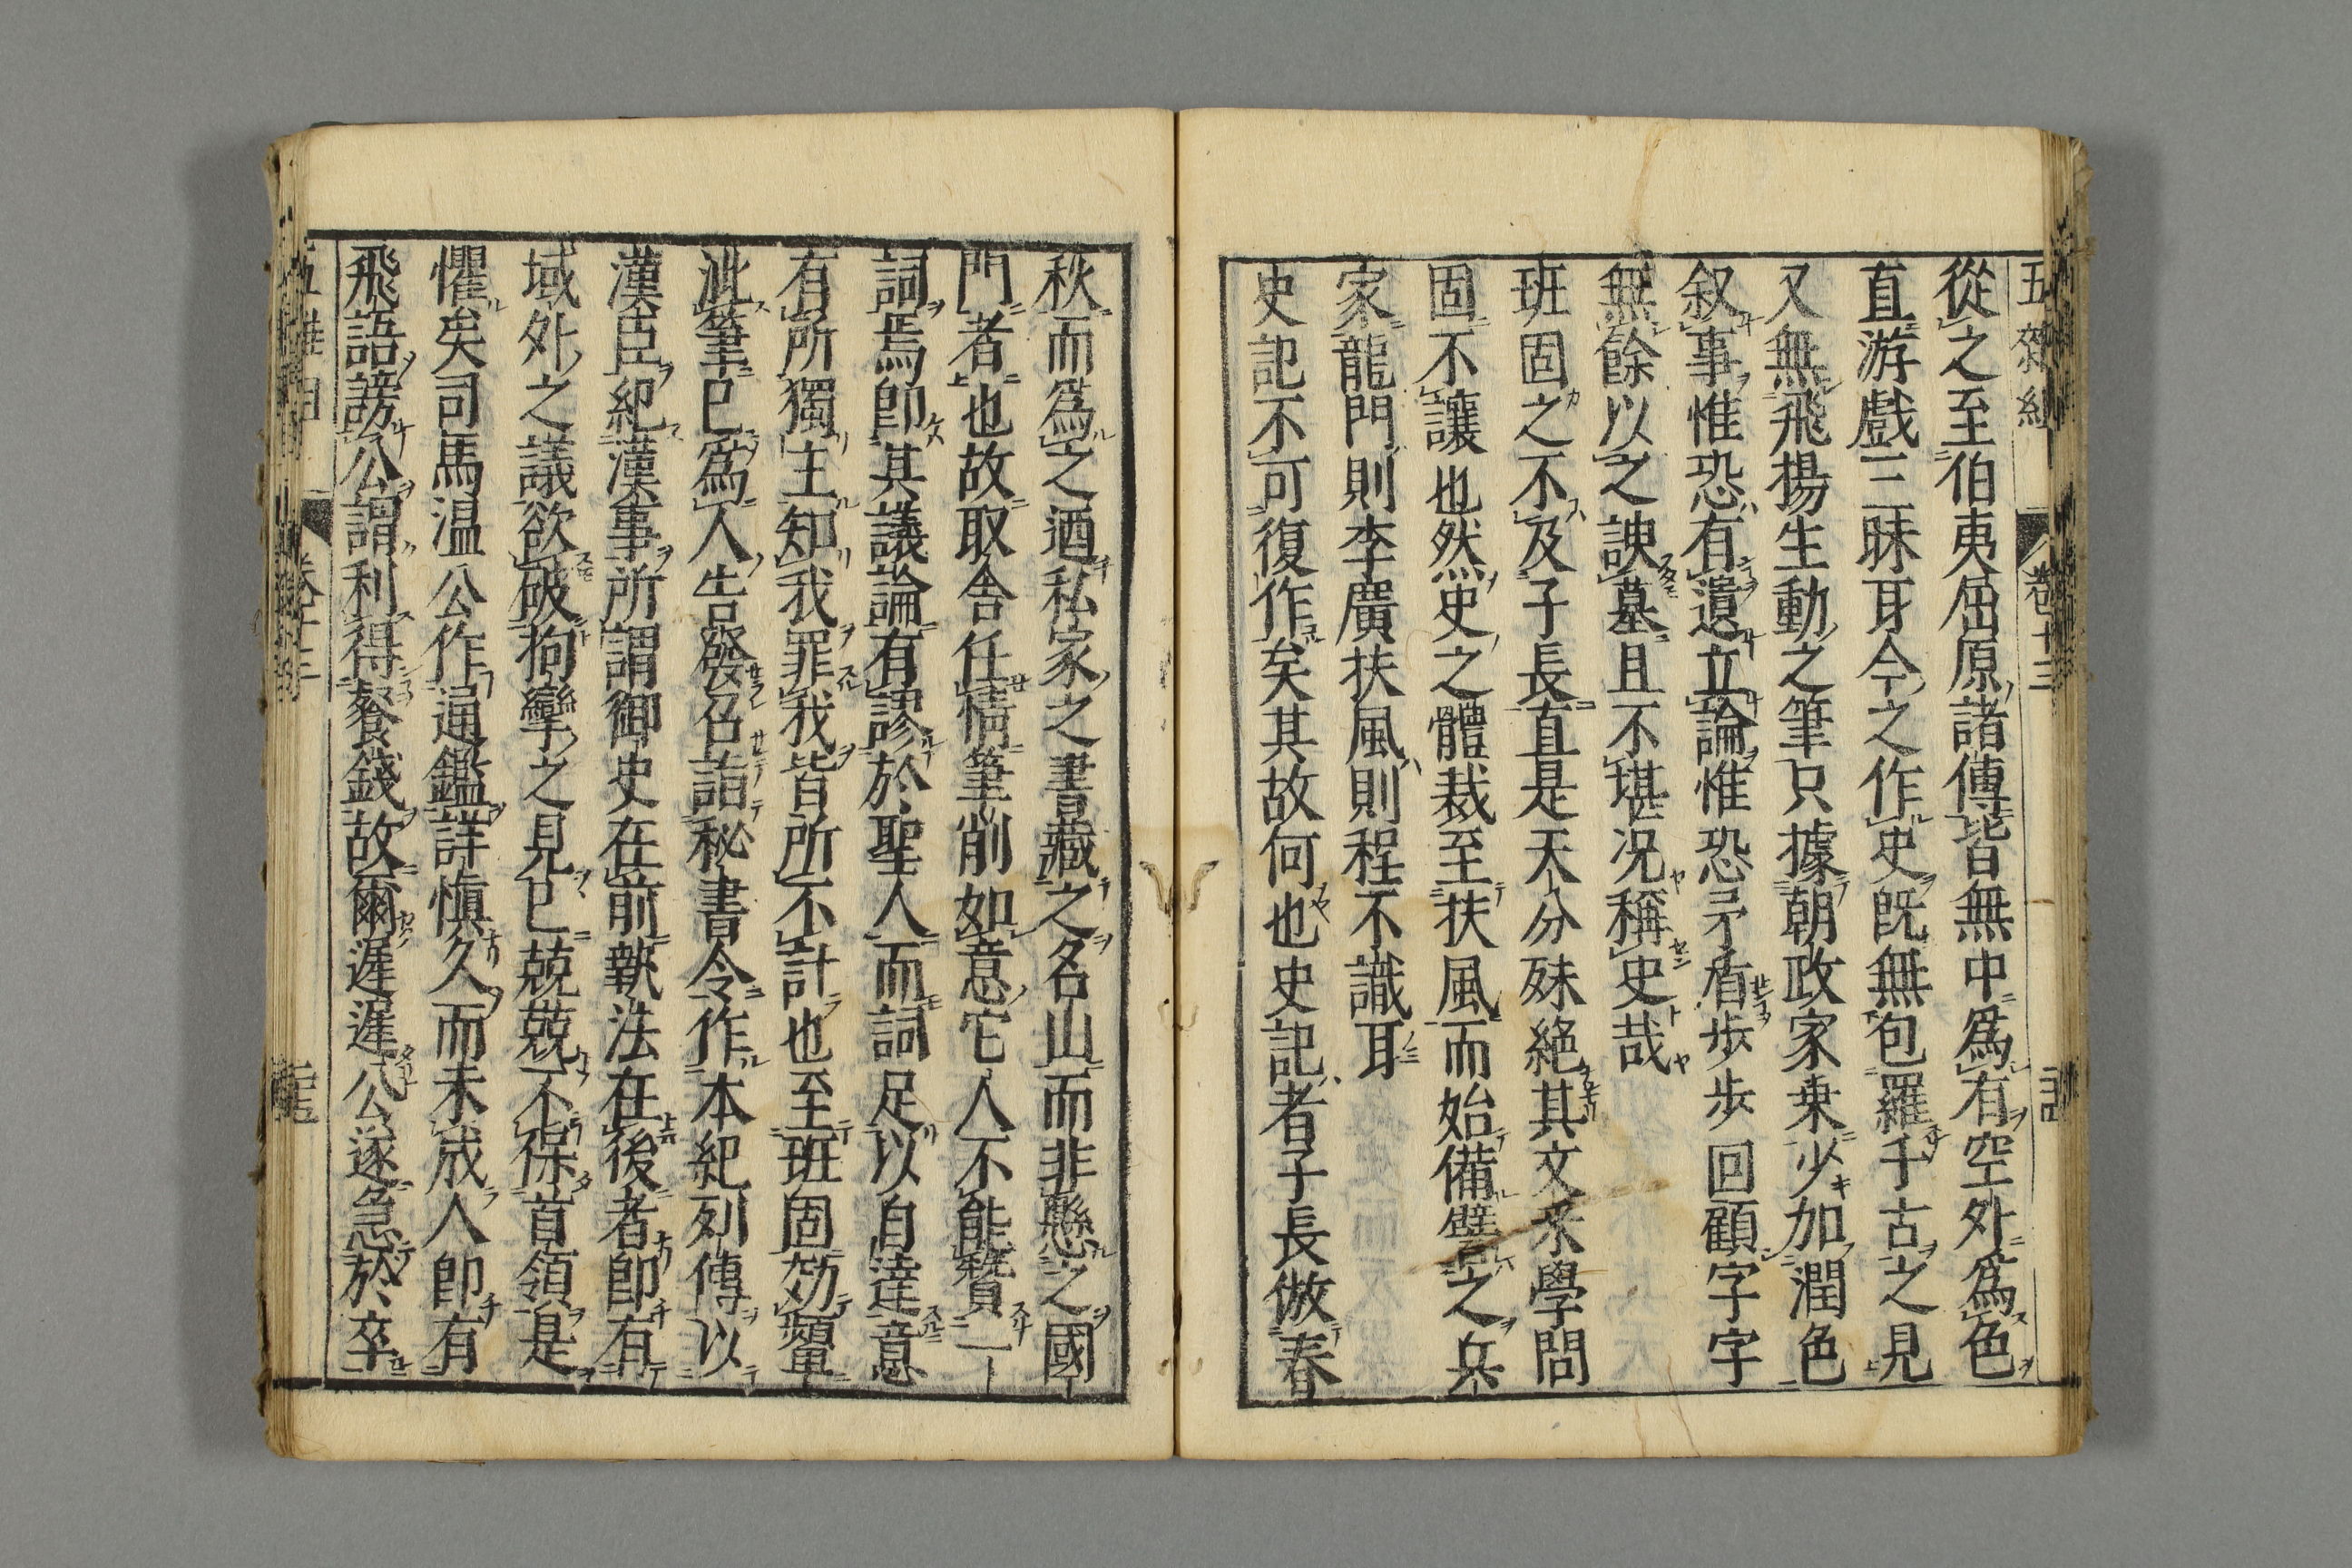 五雜組 卷十三
從之至伯夷屈原諸傳皆無中爲有空外爲色
直游戲三昧耳今之作史既無包羅千古之見
又無飛揚生動之筆只據朝政家乗少加潤色
叙事惟恐有遺立論惟恐矛盾步步回顧字字
無餘以之諛墓且不堪况稱史哉
班固之不及子長直是天分殊絕其文采學問
固不讓也然史之體裁至扶風而始備譬之兵
家龍門則李廣扶風則程不識耳
史記不可復作矣其故何也史記者子長倣春
秋而爲之迺私家之書藏之名山而非懸之國
門者也故取舎任情筆削如意它人不能贊一
詞焉卽其議論有謬於聖人而詞足以自達意
有所獨主知我罪我皆所不計也至班固効顰
泚筆已爲人告發召詣秘書令作本紀列傳以
漢臣紀漢事所謂御史在前執法在後者卽有
域外之議欲破拘攣之見已兢兢不保首領是
懼矣司馬温公作通鑑詳愼久而未成人卽有
飛語謗公謂利得餐錢故爾遲遲公遂急於卒